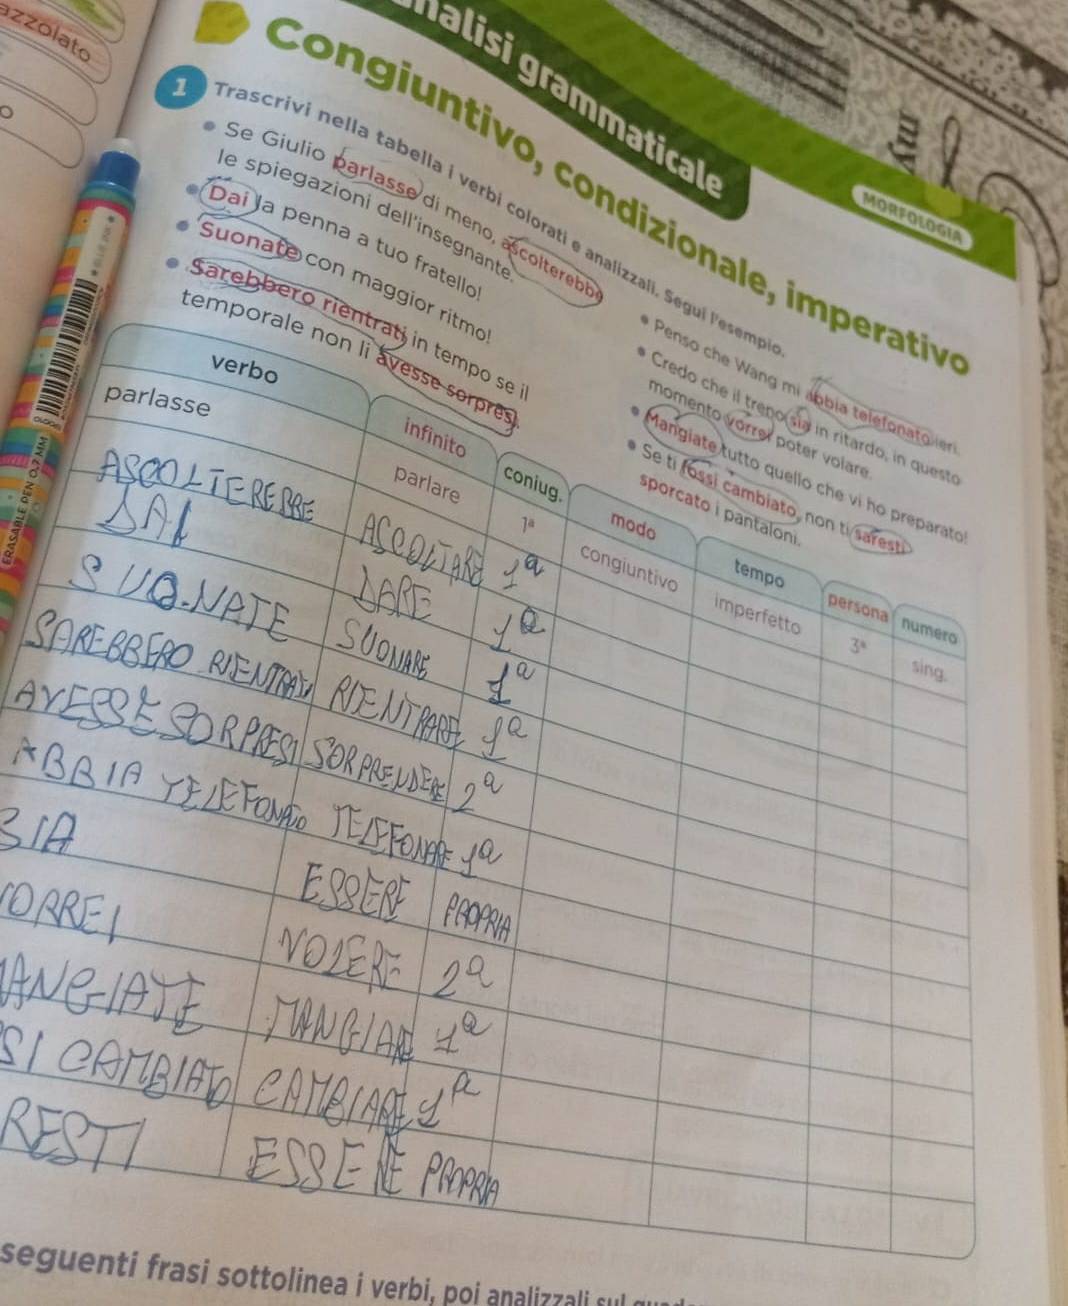 azzolato
o
nalisi grammaticale
MORFOLOGIA
Congiuntivo, condizionale, imperativo
1 Trascrivi nella tabella i verbi colorati e analizzali. Segui l'esempio.
• Se Giulio parlasse di meno, ascolterebbe
le spiegazioni dell'insegnante.
• Dai la penna a tuo fratello!
• Suonate con maggior ritmo!
• Sarebbero rientrati in tempo se il
temporale non li avesse sorpresi.
• Penso che Wang mi abbia telefonato ieri.
• Credo che il treno sia in ritardo, in questo
momento vorrei poter volare.
• Mangiate tutto quello che vi ho preparato!
• Se ti fossi cambiato, non ti saresti
sporcato i pantaloni.
verbo infinito coniug. modo tempo persona numero
parlasse parlare 1ª congiuntivo imperfetto 3ª sing.
ASCOLTEREBBE ASCOLTARE 1ª
DAI DARE 1ª
SUONATE SUONARE 1ª
SAREBBERO RIENTRATI RIENTRARE 1ª
AVESSE SORPRESI SORPRENDERE 2ª
ABBIA TELEFONATO TELEFONARE 1ª
SIA ESSERE PROPRIA
ORREI VOLERE 2ª
ANGIATE MANGIARE 1ª
SI CAMBIATO CAMBIARE 1ª
RESTI ESSERE PROPRIA
seguenti frasi sottolinea i verbi, poi analizzali sul
ERASABLE PEN 0,7 MM